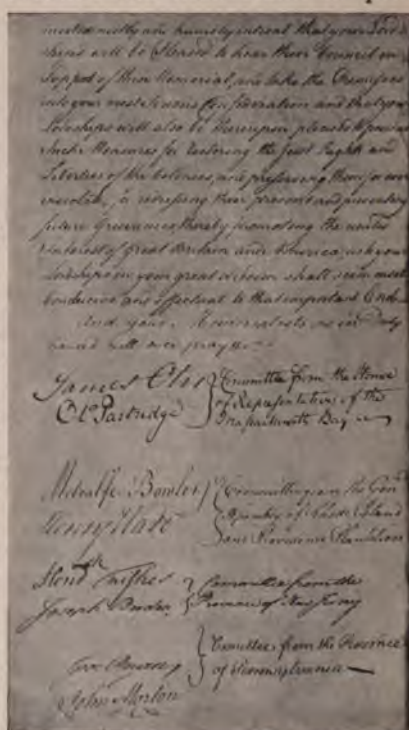 most earnestly and humbly intreat that your Lord
ships will be pleased to hear their Council in
Support of their Memorial, and take the Premisses
into your most serious Consideration and that your
Lordships will also be thereupon pleased to pursue
such Measures for restoring the just Rights and
Liberties of the Colonies, and preserving them for ever
inviolate, redressing their present and preventing
future Grievances, thereby promoting the united
Interest of great Britain and America, as to your
Lordships in your great wisdom shall seem most
conducive and effectual to that important End
And your Memorialists as in Duty
bound will ever pray
James Otis Committee from the House
O Partridge of Representatives of the
Massachusetts Bay
Metcalfe Bowler Committee from the
Henry Ward Assembly of Rhode Island
and Providence Plantations
Hend Fisher Committee from the
Joseph Borden Province of New Jersey
Committee from the Province
of Pennsylvania
John Morton